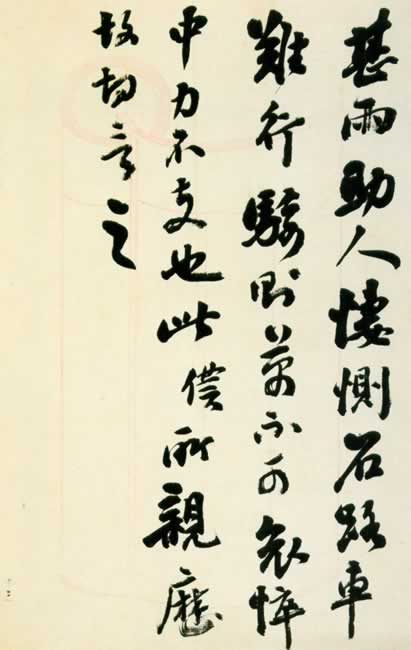 甚雨助人悽惻石路車
難行騎則萬不可哀悴
中力不支也此僕所親歷
故切言之